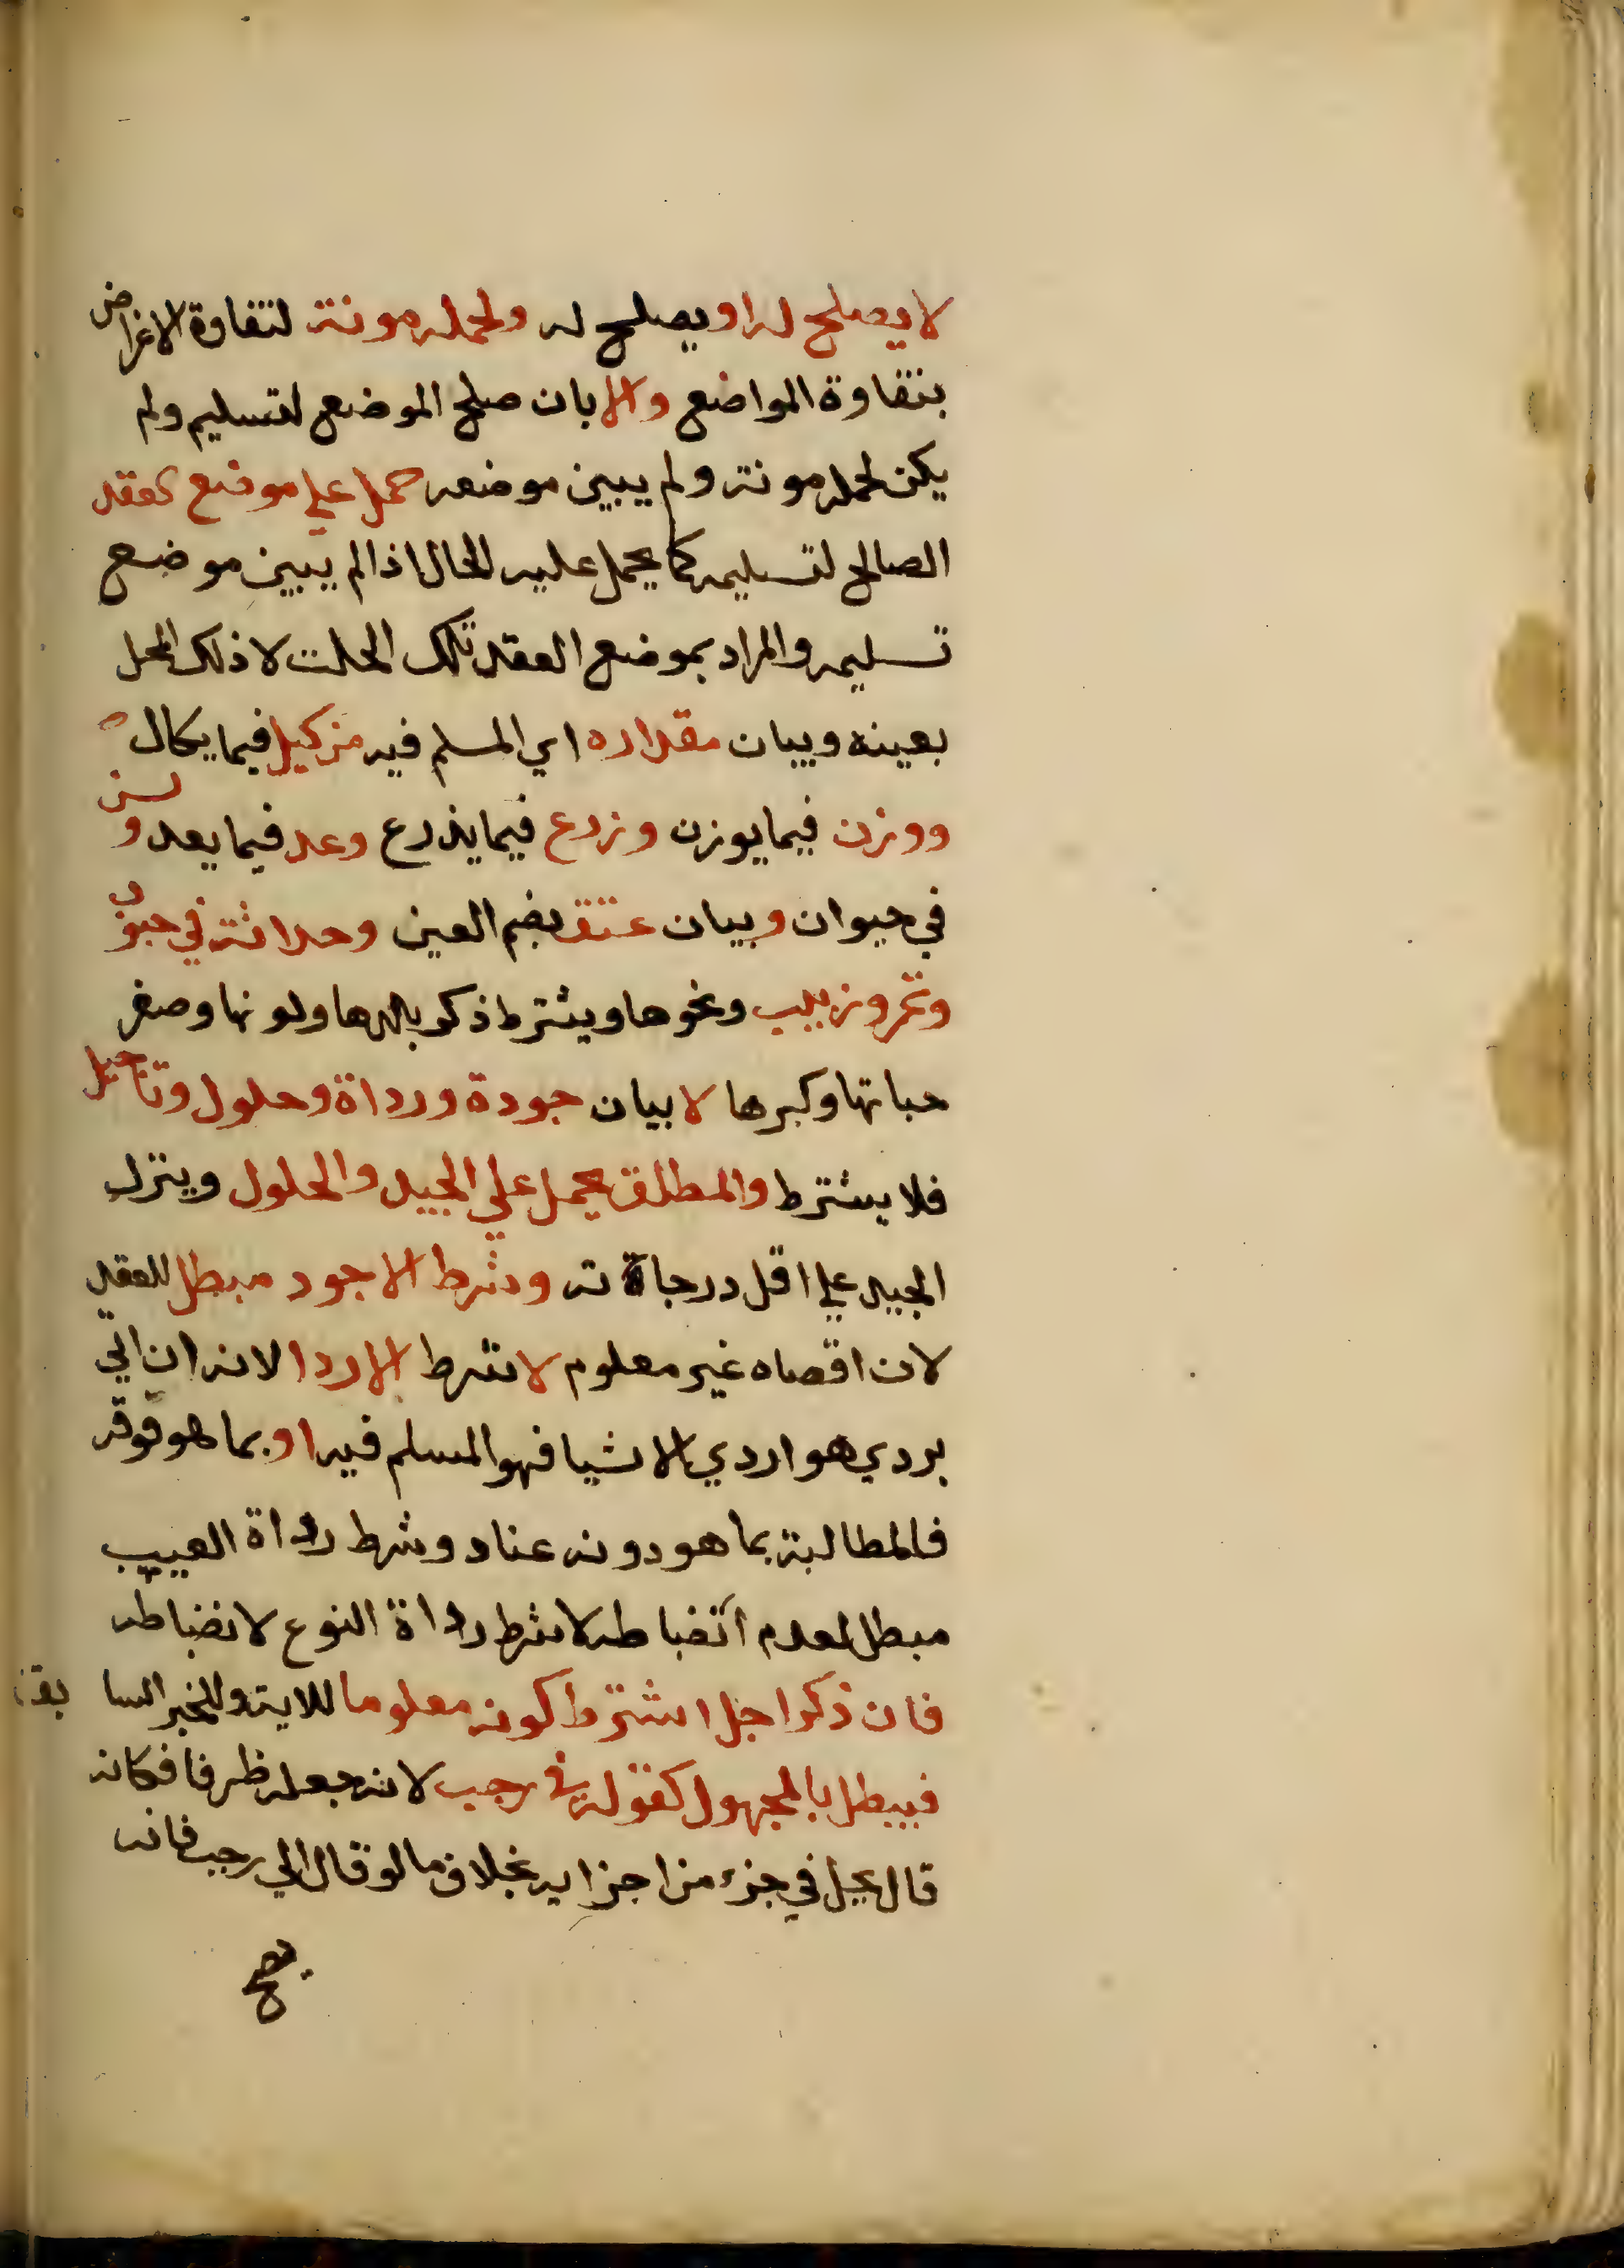 لا يصلح له او يصلح له ولحمله مونة لتفاوة الاغراض
بتفاوة المواضع والا بان صلح الموضع لتسليم ولم
يكن لحمله مونة ولم يبين موضعه حمل علي موضع لعقد
الصالح لتسليمه كما يحمل عليه الحال اذا لم يبين موضع
تسليمه والمراد بموضع العقد تلك المحلت لا ذلك المحل
بعينه وبيان مقداره اي المسلم فيه من كيل فيما يكال
ووزن فيما يوزن وزرع فيما يذرع وعد فيما يعد وسن
في حيوان وبيان عتق بضم العين وحداثة في حبوب
وتمر وزبيب ونحوها ويشترط ذكر بلدها ولونها وصغر
حباتها وكبرها لا بيان جودة ورداة وحلول وتاجيل
فلا يشترط والمطلق يحمل علي الجيد والحلول وينزل
الجيد علي اقل درجاة ته وشرط الاجود مبطل للعقد
لان اقصاه غير معلوم لا شرط الاردا لانه ان اتي
بردي هو اردي الاشيا فهو المسلم فيه او بما هو فوقه
فالمطالبة بما هو دونه عناد وشرط رداة العيب
مبطل لعدم انضباطه لا شرط رداة النوع لانضباطه
فان ذكر اجل اشترط كونه معلوما للاية والخبر السا بقة
فيبطل بالمجهول كقوله في رجب لانه جعله ظرفا فكانه
قال يحل في جزء من اجزايه بخلاف ما لو قال الي رجب فانه
يصح